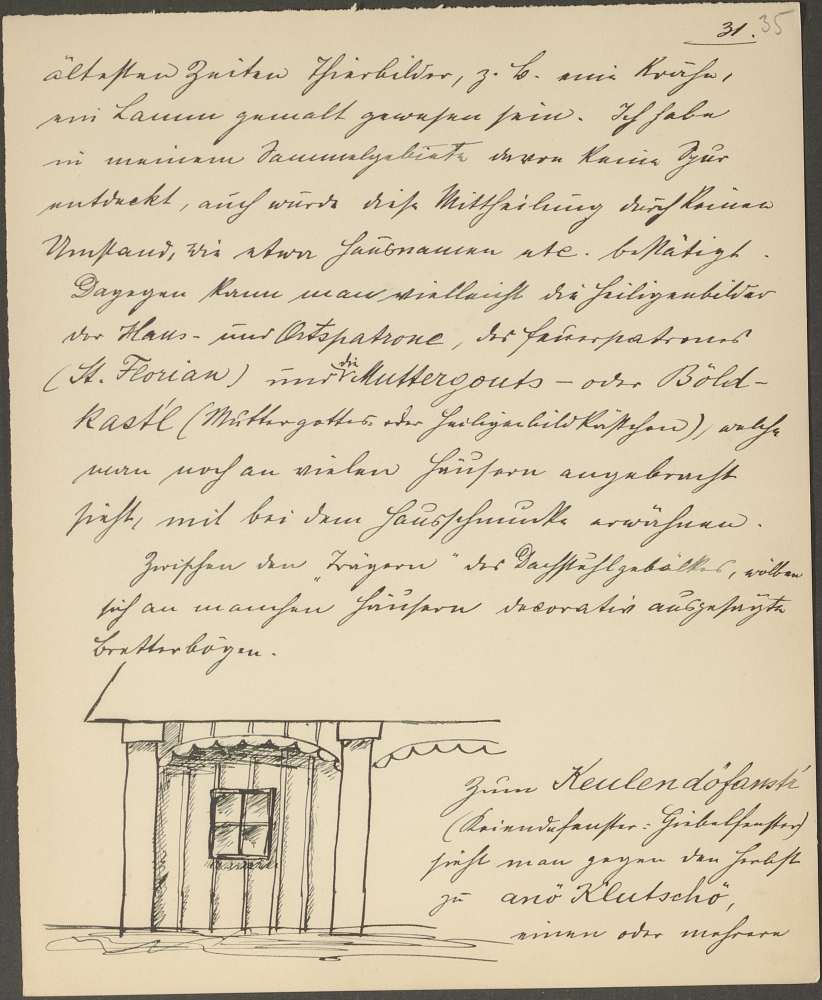 31. 35
ältesten Zeiten Thierbilder, z. B. eine Krähe,
ein Lamm gemalt gewesen sein. Ich habe
in meinem Sammelgebiete davon keine Spur
entdeckt, auch wurde diese Mittheilung durch keinen
Umstand, wie etwa Hausnamen etc. bestätigt.
Dagegen kann man vielleicht die Heiligenbilder
der Haus- und Ortspatrone, des Feuerpatrones
(St. Florian) und die Muttergouts- oder Böld-
kastl (Muttergottes- oder Heiligenbildkästchen), welche
man noch an vielen Häusern angebracht
sieht, mit bei dem Hausschmucke erwähnen.
Zwischen den „Trägern" des Dachstuhlgebälkes, wölben
sich an manchen Häusern decorativ ausgesägte
Bretterbögen.
Zum
(          : Giebelfenster)
sieht man gegen den Herbst
zu anö Klutschö,
einen oder mehrere